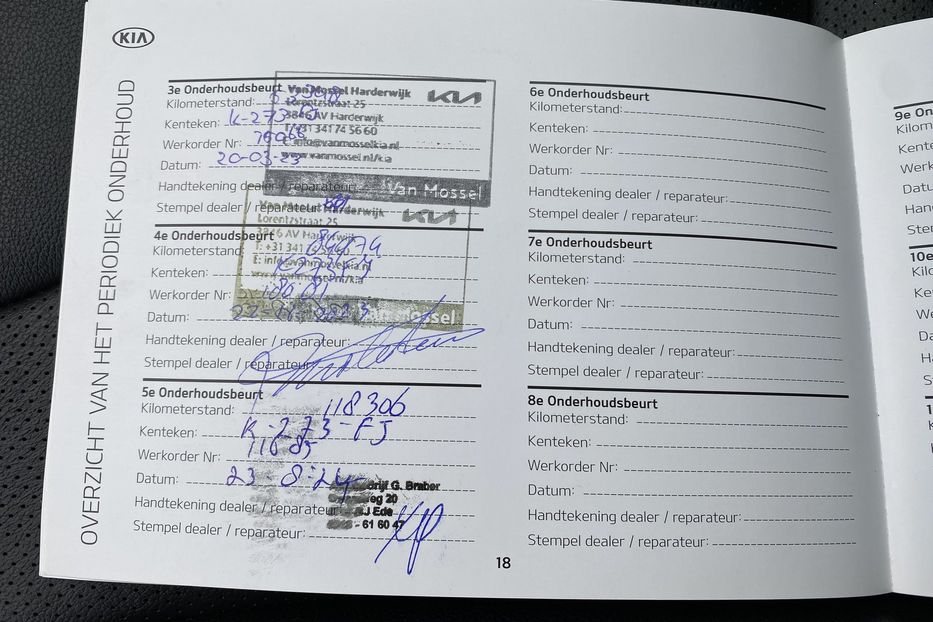 KIA
OVERZICHT VAN HET PERIODIEK ONDERHOUD
3e Onderhoudsbeurt
Kilometerstand:
Kenteken: K-273-FJ
Werkorder Nr:
Datum: 20-03-23
Handtekening dealer / reparateur:
Stempel dealer / reparateur:
Van Mossel Harderwijk KIA
Lorentzstraat 25
3846 AV Harderwijk
T: +31 341 74 56 60
E: info@vanmosselkia.nl
www.vanmossel.nl/kia
Van Mossel
4e Onderhoudsbeurt
Kilometerstand:
Kenteken: K273FJ
Werkorder Nr:
Datum:
Handtekening dealer / reparateur:
Stempel dealer / reparateur:
Van Mossel Harderwijk KIA
Lorentzstraat 25
3846 AV Harderwijk
T: +31 341
E: info@vanmosselkia.nl
www.vanmossel.nl/kia
Van Mossel
5e Onderhoudsbeurt
Kilometerstand: 118306
Kenteken: K-273-FJ
Werkorder Nr: 11085
Datum: 23-8-24
Handtekening dealer / reparateur:
Stempel dealer / reparateur:
G. Braber
20
Ede
- 61 60 47
6e Onderhoudsbeurt
Kilometerstand:
Kenteken:
Werkorder Nr:
Datum:
Handtekening dealer / reparateur:
Stempel dealer / reparateur:
7e Onderhoudsbeurt
Kilometerstand:
Kenteken:
Werkorder Nr:
Datum:
Handtekening dealer / reparateur:
Stempel dealer / reparateur:
8e Onderhoudsbeurt
Kilometerstand:
Kenteken:
Werkorder Nr:
Datum:
Handtekening dealer / reparateur:
Stempel dealer / reparateur:
18
9e On
Kilom
Kente
Werk
Datu
Han
Ste
10e